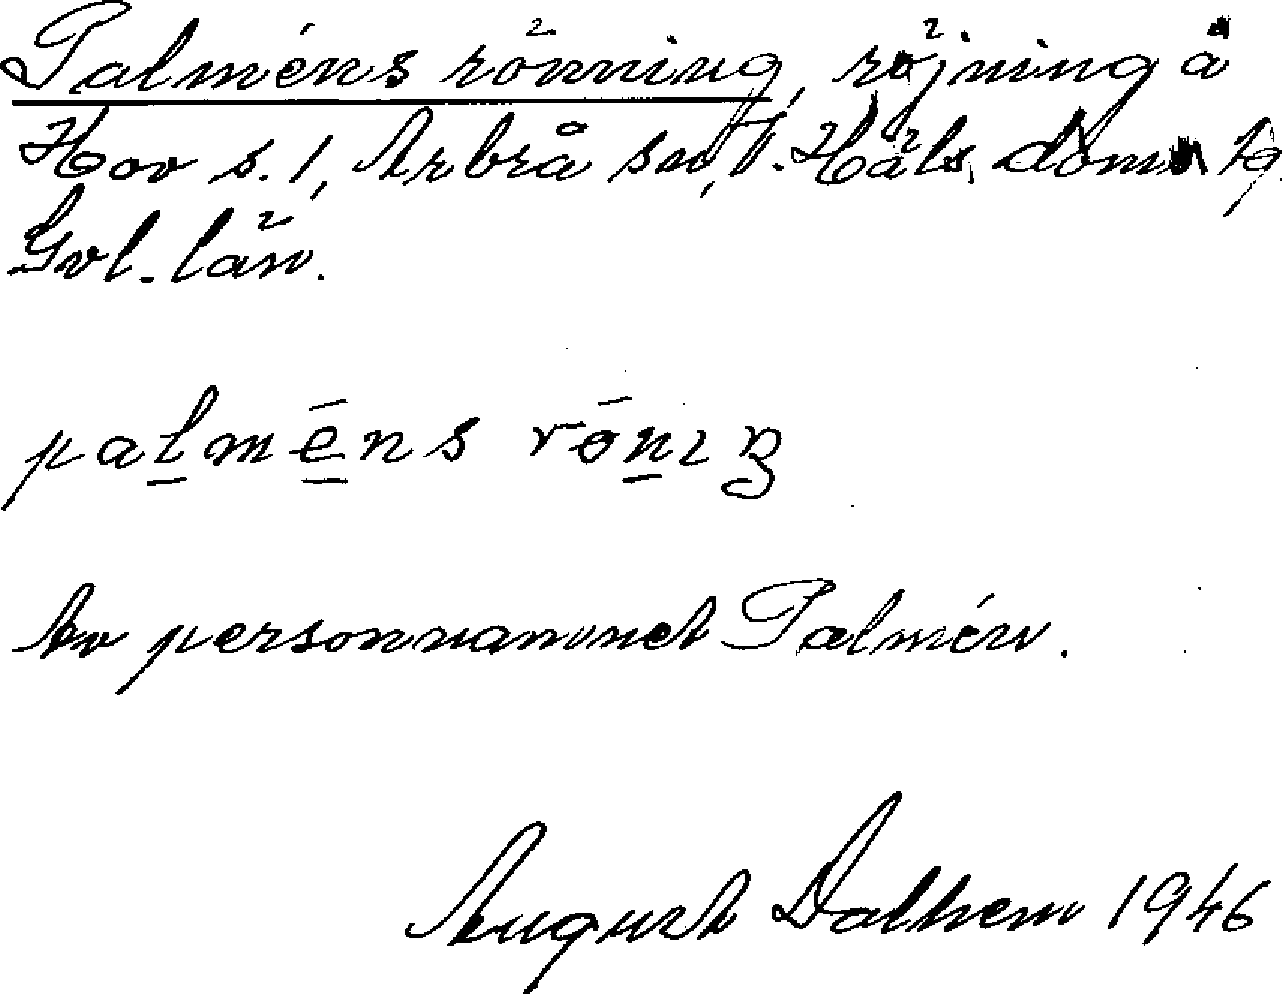 Palméns rönning, röjning å
Hov s. 1, Arbrå sn, V. Häls. doms lg
Gvl. län.
palméns röniŋ
Av personnamnet Palmén.
August Dalhem 1946